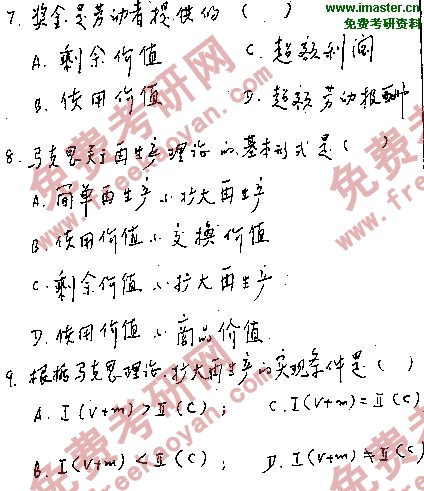 www.imaster.cn
免费考研资料
7. 奖金是劳动者提供的 ( )
A. 剩余价值 C. 超额利润
B. 使用价值 D. 超额劳动报酬
8. 马克思关于再生产理论的基本形式是 ( )
A. 简单再生产、扩大再生产
B. 使用价值、交换价值
C. 剩余价值、扩大再生产
D. 使用价值、商品价值
9. 根据马克思理论, 扩大再生产的实现条件是 ( )
A. I(V+m)>II(C); C. I(V+m)=II(C)
B. I(V+m)<II(C); D. I(V+m)≠II(C)
免费考研网
www.freekaoyan.com